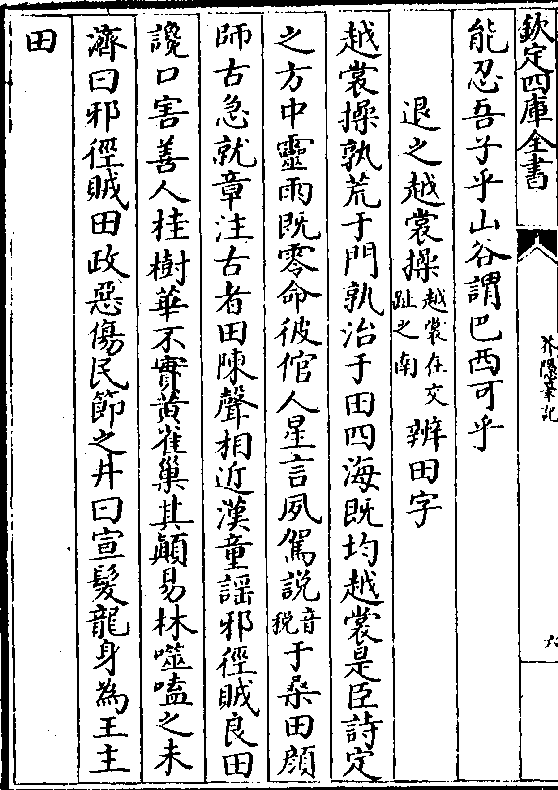 欽定四庫全書
芥隱筆記
六
能忍吾子乎山谷謂巴西可乎
退之越裳操越裳在交趾之南辨田字
越裳操孰荒于門孰治于田四海既均越裳是臣詩定
之方中靈雨既零命彼倌人星言夙駕說音稅于桑田顔
師古急就章注古者田陳聲相近漢童謡邪徑賊良田
讒口害善人桂樹華不實黄雀巢其顛易林噬嗑之未
濟曰邪徑賊田政惡傷民節之井曰宣髮龍身為王主
田